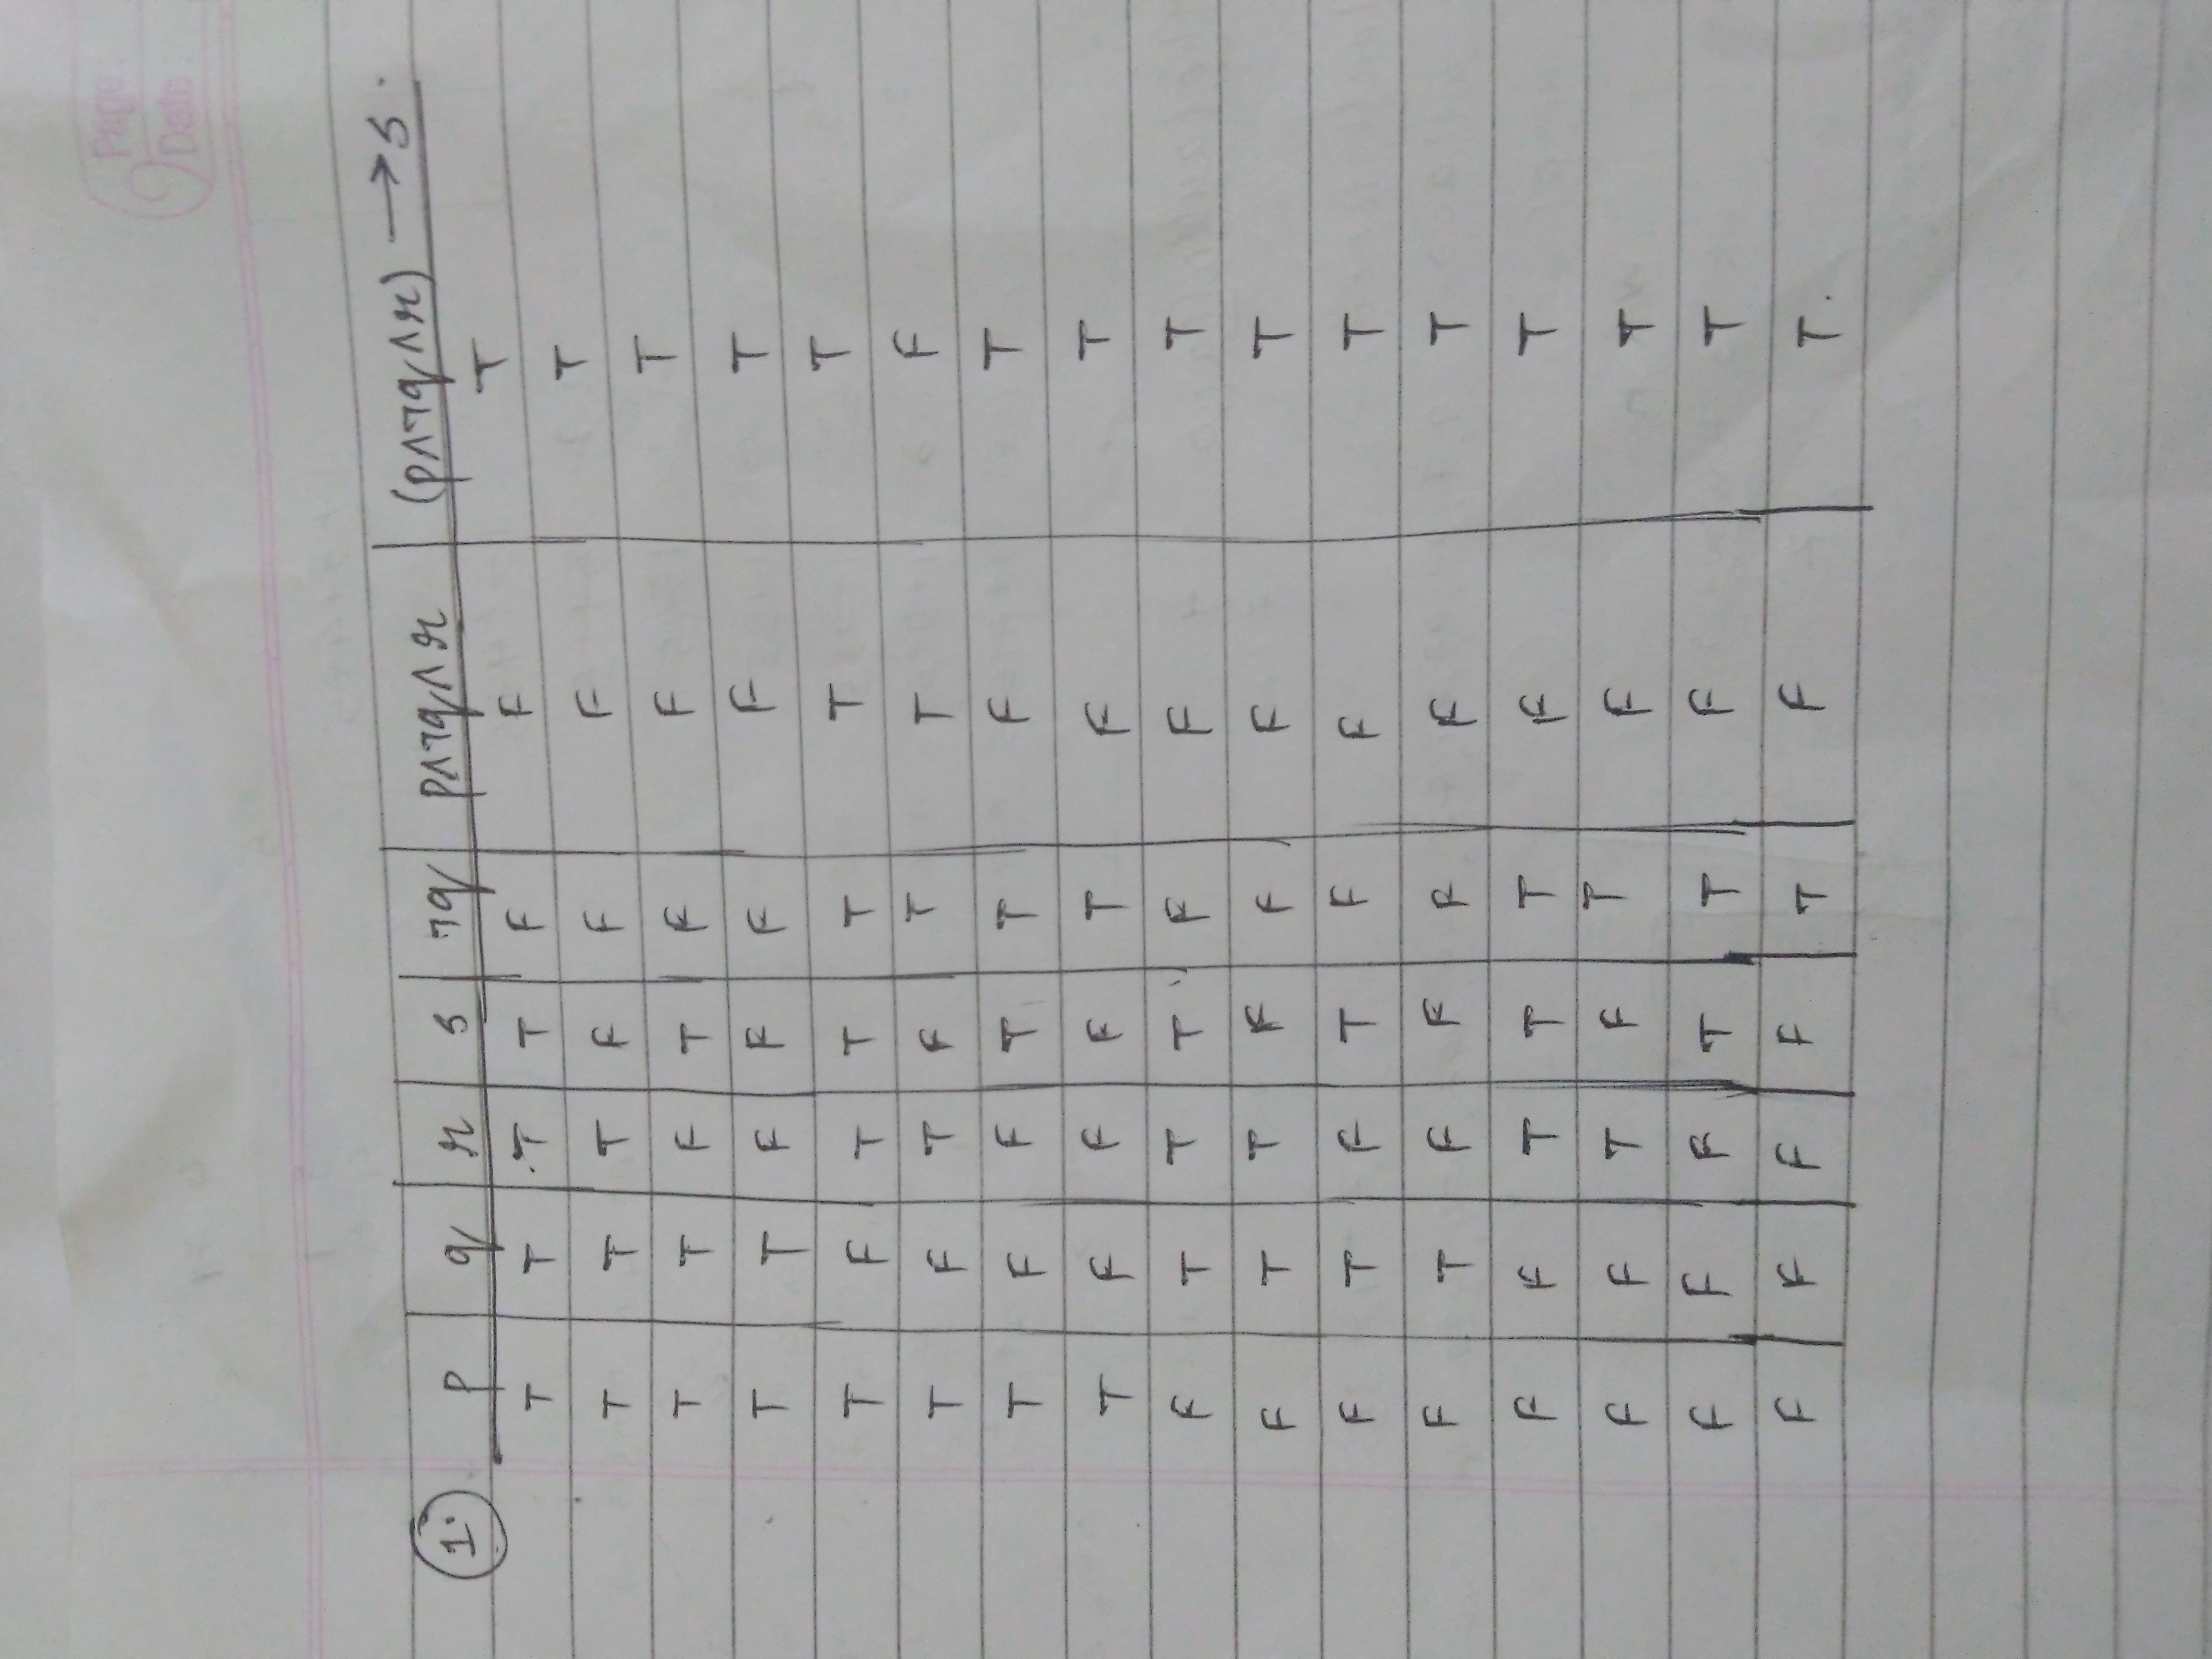 Page:
Date:
1. p q r s ¬q p∧¬q∧r (p∧¬q∧r) → s.
T T T T F F T
T T T F F F T
T T F T F F T
T T F F F F T
T F T T T T T
T F T F T T F
T F F T T F T
T F F F T F T
F T T T F F T
F T T F F F T
F T F T F F T
F T F F F F T
F F T T T F T
F F T F T F T
F F F T T F T
F F F F T F T.